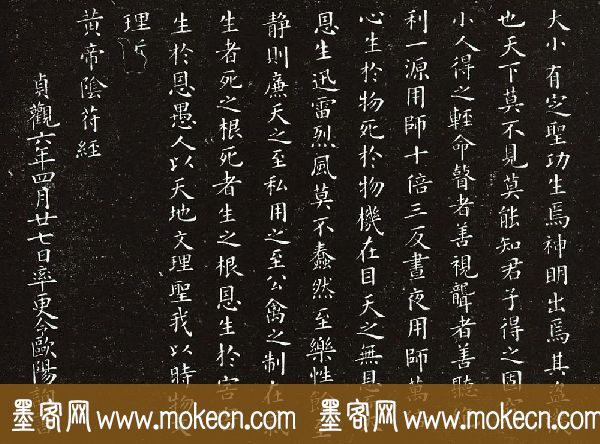 大小有定聖功生焉神明出焉其盜
也天下莫不見莫能知君子得之固
小人得之輕命瞽者善視聾者善聽
利一源用師十倍三反晝夜用師萬
心生於物死於物機在目天之無恩
恩生迅雷烈風莫不蠢然至樂性餘至
静則廉天之至私用之至公禽之制在
生者死之根死者生之根恩生於害
生於恩愚人以天地文理聖我以時物文
理
黄帝陰符經
貞觀六年四月廿七日率更令歐陽詢書
墨客网 www.mokecn.com 墨客网 www.mokecn.com